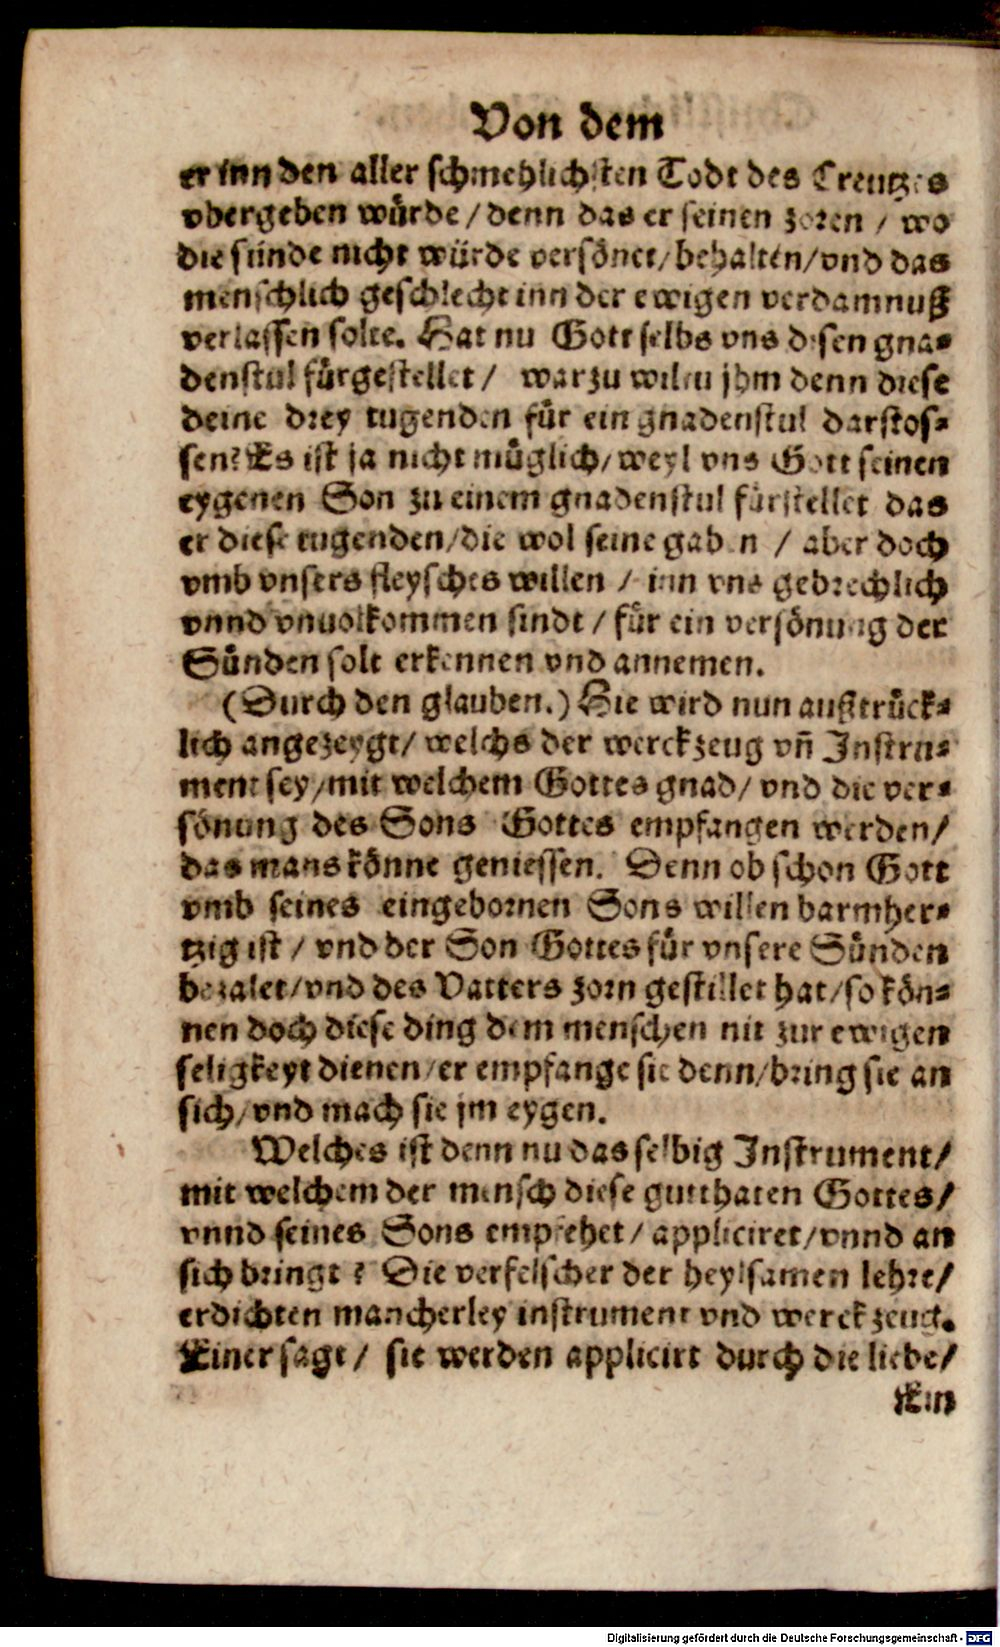 Von dem
er inn den aller schmehlichsten Todt des Creutzes
vbergeben würde / denn das er seinen zoren / wo
die sünde nicht würde versönet / behalten / vnd das
menschlich geschlecht inn der ewigen verdamnuß
verlassen solte. Hat nu Gott selbs vns disen gna=
denstul fürgestellet / warzu wiltu jhm denn diese
deine drey tugenden für ein gnadenstul darstos=
sen? Es ist ja nicht müglich / weyl vns Gott seinen
eygenen Son zu einem gnadenstul fürstellet das
er diese tugenden / die wol seine gaben / aber doch
vmb vnsers fleysches willen / inn vns gebrechlich
vnnd vnuolkommen sindt / für ein versönung der
Sünden solt erkennen vnd annemen.
(Durch den glauben.) Hie wird nun außtrück=
lich angezeygt / welchs der werckzeug vñ Instru=
ment sey / mit welchem Gottes gnad / vnd die ver=
sönung des Sons Gottes empfangen werden /
das mans könne geniessen. Denn ob schon Gott
vmb seines eingebornen Sons willen barmher=
tzig ist / vnd der Son Gottes für vnsere Sünden
bezalet / vnd des Vatters zorn gestillet hat / so kön=
nen doch diese ding dem menschen nit zur ewigen
seligkeyt dienen / er empfange sie denn / bring sie an
sich / vnd mach sie jm eygen.
Welches ist denn nu das selbig Instrument /
mit welchem der mensch diese gutthaten Gottes /
vnnd seines Sons empfehet / appliciret / vnnd an
sich bringt? Die verfelscher der heylsamen lehre /
erdichten mancherley instrument vnd werckzeug.
Einer sagt / sie werden applicirt durch die liebe /
Ein
Digitalisierung gefördert durch die Deutsche Forschungsgemeinschaft - DFG